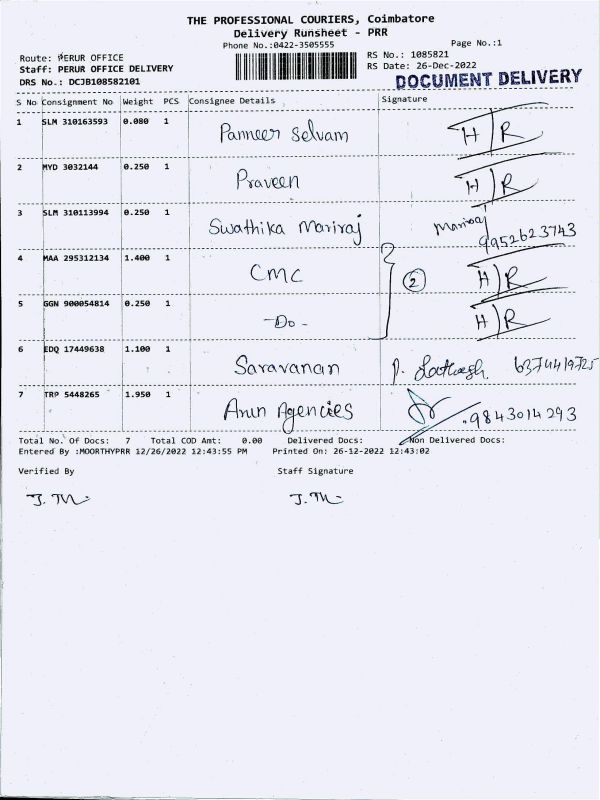 THE PROFESSIONAL COURIERS, Coimbatore
Delivery Runsheet - PRR
Phone No.:0422-3505555
Page No.:1
Route: PERUR OFFICE
RS No.: 1085821
Staff: PERUR OFFICE DELIVERY
RS Date: 26-Dec-2022
DRS No.: DCJB108582101
DOCUMENT DELIVERY
S No Consignment No Weight PCS Consignee Details Signature
1 SLM 310163593 0.080 1 Panneer Selvam H)R
2 MYD 3032144 0.250 1 Praveen H)R
3 SLM 310113994 0.250 1 Swathika Mariraj Mariraj
9952623743
4 MAA 295312134 1.400 1 CMC 2 H)R
5 GGN 900054814 0.250 1 -Do- H)R
6 EDQ 17449638 1.100 1 Saravanan 6374419725
7 TRP 5448265 1.950 1 Arun Agencies 9843014293
Total No. Of Docs: 7 Total COD Amt: 0.00 Delivered Docs: Non Delivered Docs:
Entered By :MOORTHYPRR 12/26/2022 12:43:55 PM Printed On: 26-12-2022 12:43:02
Verified By Staff Signature